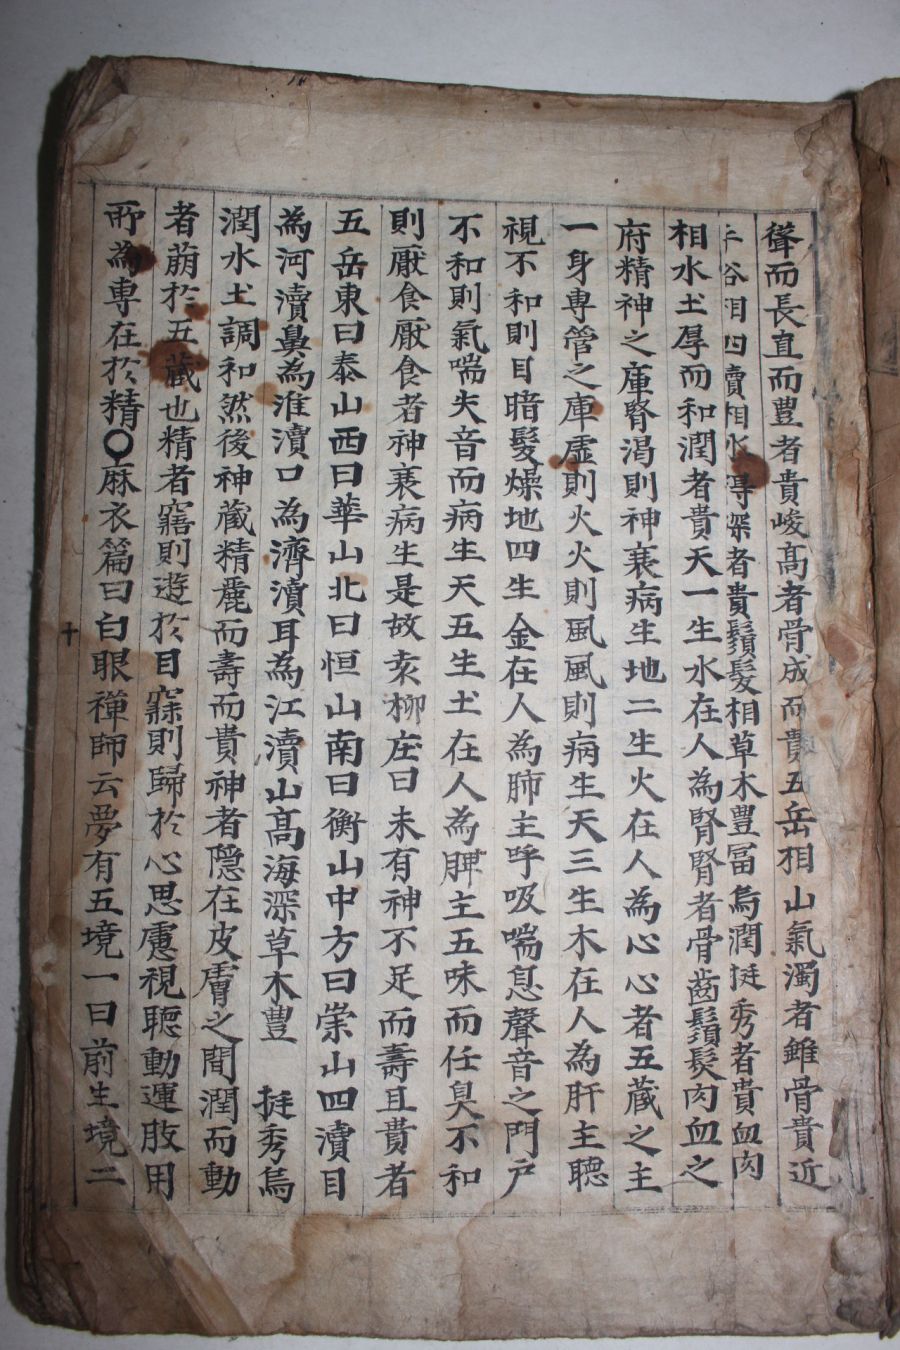 聳而長直而豊者貴峻髙者骨成而貴五岳相山氣濁者雖骨貴近
谷相四瀆相水得深者貴鬚髮相草木豊冨烏潤挺秀者貴血肉
相水土厚而和潤者貴天一生水在人為腎腎者骨齒鬚髮肉血之
府精神之庫腎渴則神衰病生地二生火在人為心心者五蔵之主
一身専管之庫虛則火火則風風則病生天三生木在人為肝主聽
視不和則目暗髮燥地四生金在人為肺主呼吸喘息聲音之門户
不和則氣喘失音而病生天五生土在人為脾主五味而任臭不和
則厭食厭食者神衰病生是故麦柳庄曰未有神不足而壽且貴者
五岳東曰泰山西曰華山北曰恒山南曰衡山中方曰崇山四瀆目
為河瀆鼻為淮瀆口為濟瀆耳為江瀆山髙海深草木豊 挺秀烏
潤水土調和然後神蔵精麗而壽而貴神者隠在皮膚之間潤而動
者萠於五蔵也精者寤則遊於目寐則歸於心思慮視聽動運肢用
所為専在於精○麻衣篇曰白眼禪師云夢有五境一曰前生境二
十